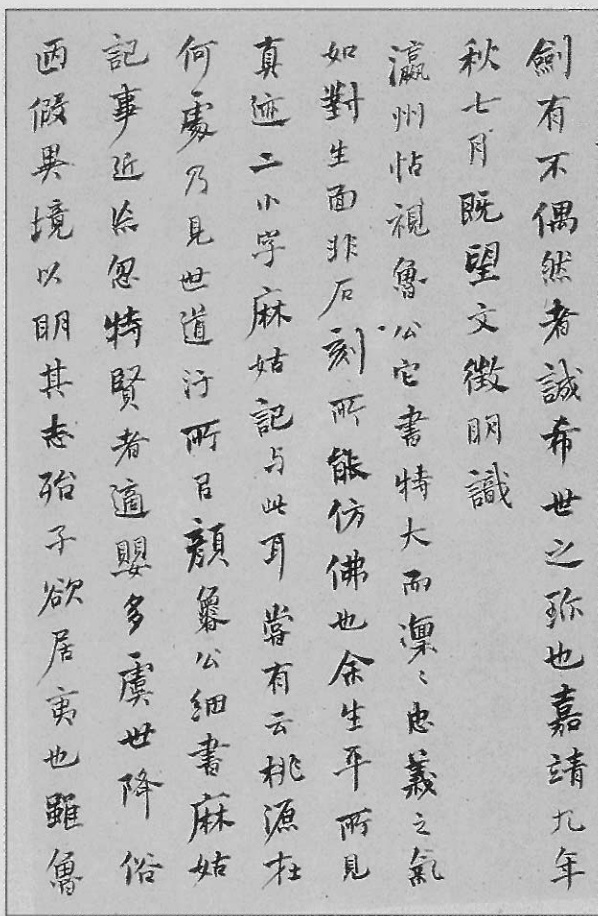 劍有不偶然者誠希世之珎也嘉靖九年
秋七月既望文徵明識
瀛州帖視魯公它書特大而凜〻忠義之氣
如對生面非石刻所能仿佛也余生平所見
真迹二小字麻姑記与此耳嘗有云桃源在
何處乃見世道汙所㠯顏魯公細書麻姑
記事近治忽特賢者適嬰多虞世降俗
西假異境以明其志殆子欲居夷也雖魯